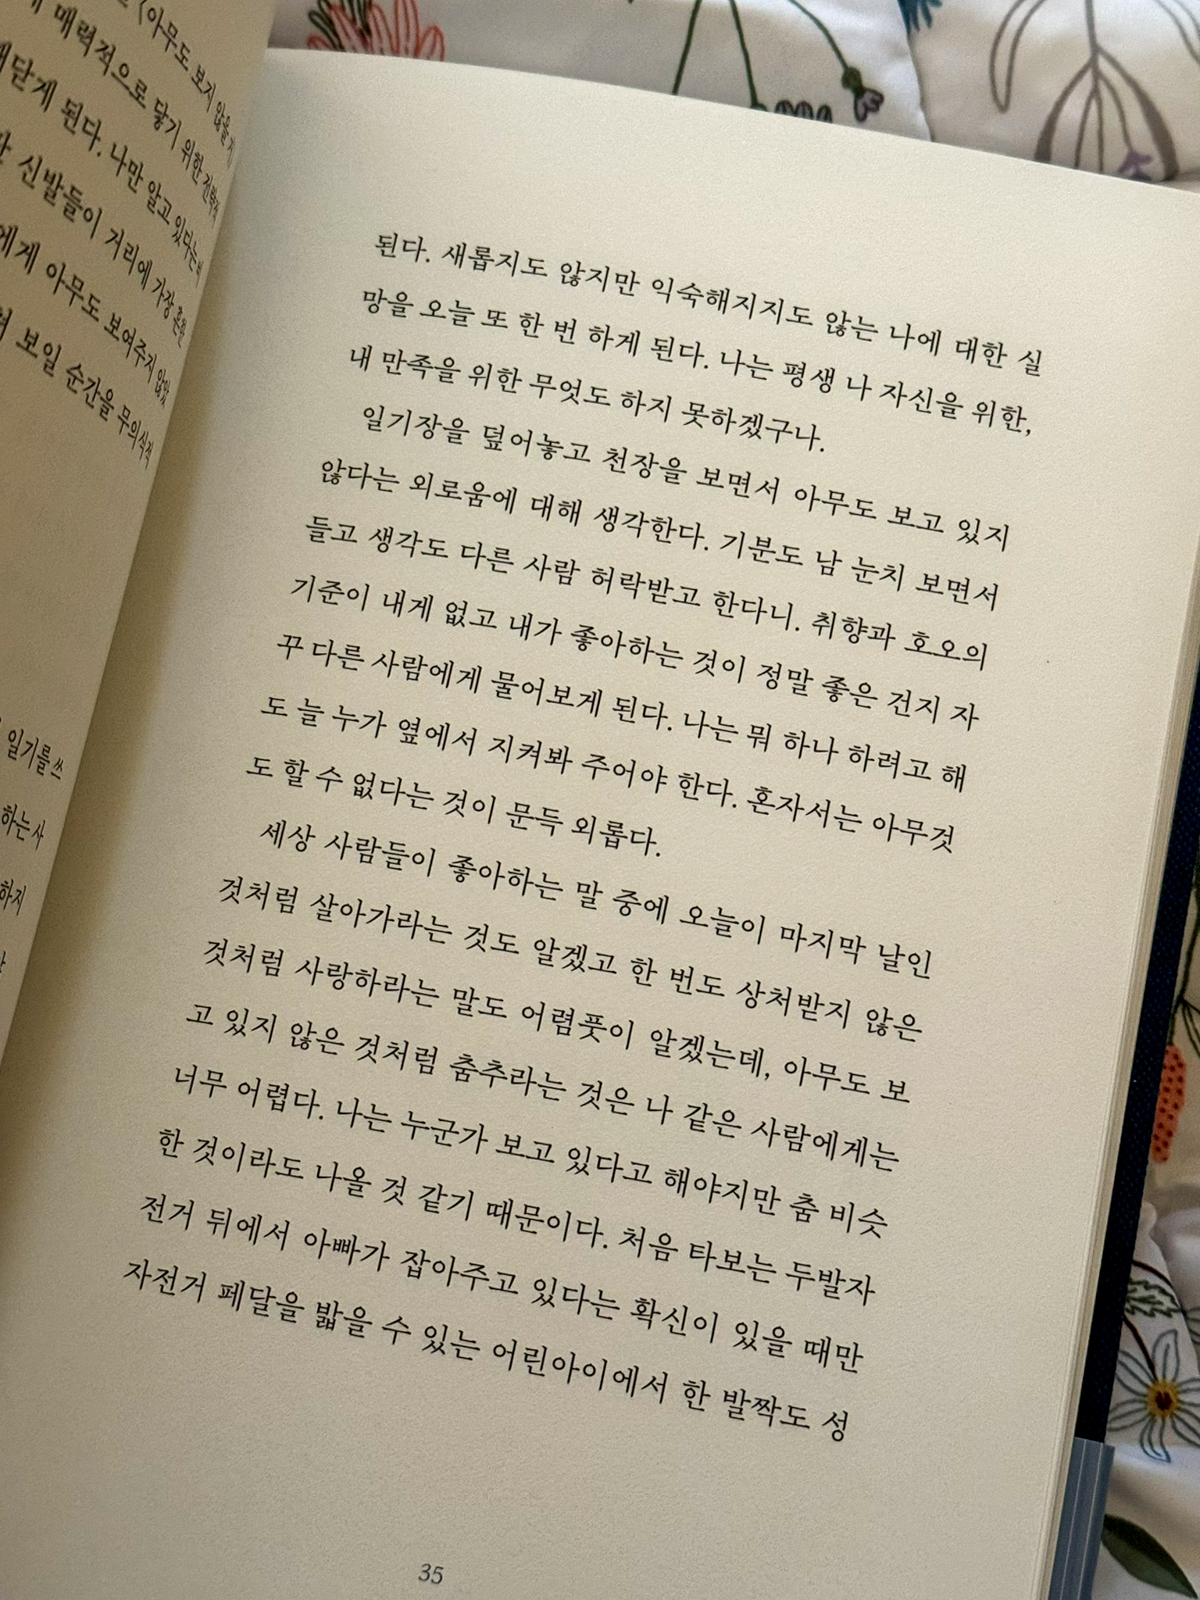 〈아무도 보지 않을
매력적으로 닿기 위한 전략
된다. 나만 알고 있다는
신발들이 거리에 가장 흔한
에게 아무도 보여주지 않았
보일 순간을 무의식적
일기를 쓰
하는 사
하지
된다. 새롭지도 않지만 익숙해지지도 않는 나에 대한 실
망을 오늘 또 한 번 하게 된다. 나는 평생 나 자신을 위한,
내 만족을 위한 무엇도 하지 못하겠구나.
일기장을 덮어놓고 천장을 보면서 아무도 보고 있지
않다는 외로움에 대해 생각한다. 기분도 남 눈치 보면서
들고 생각도 다른 사람 허락받고 한다니. 취향과 호오의
기준이 내게 없고 내가 좋아하는 것이 정말 좋은 건지 자
꾸 다른 사람에게 물어보게 된다. 나는 뭐 하나 하려고 해
도 늘 누가 옆에서 지켜봐 주어야 한다. 혼자서는 아무것
도 할 수 없다는 것이 문득 외롭다.
세상 사람들이 좋아하는 말 중에 오늘이 마지막 날인
것처럼 살아가라는 것도 알겠고 한 번도 상처받지 않은
것처럼 사랑하라는 말도 어렴풋이 알겠는데, 아무도 보
고 있지 않은 것처럼 춤추라는 것은 나 같은 사람에게는
너무 어렵다. 나는 누군가 보고 있다고 해야지만 춤 비슷
한 것이라도 나올 것 같기 때문이다. 처음 타보는 두발자
전거 뒤에서 아빠가 잡아주고 있다는 확신이 있을 때만
자전거 페달을 밟을 수 있는 어린아이에서 한 발짝도 성
35